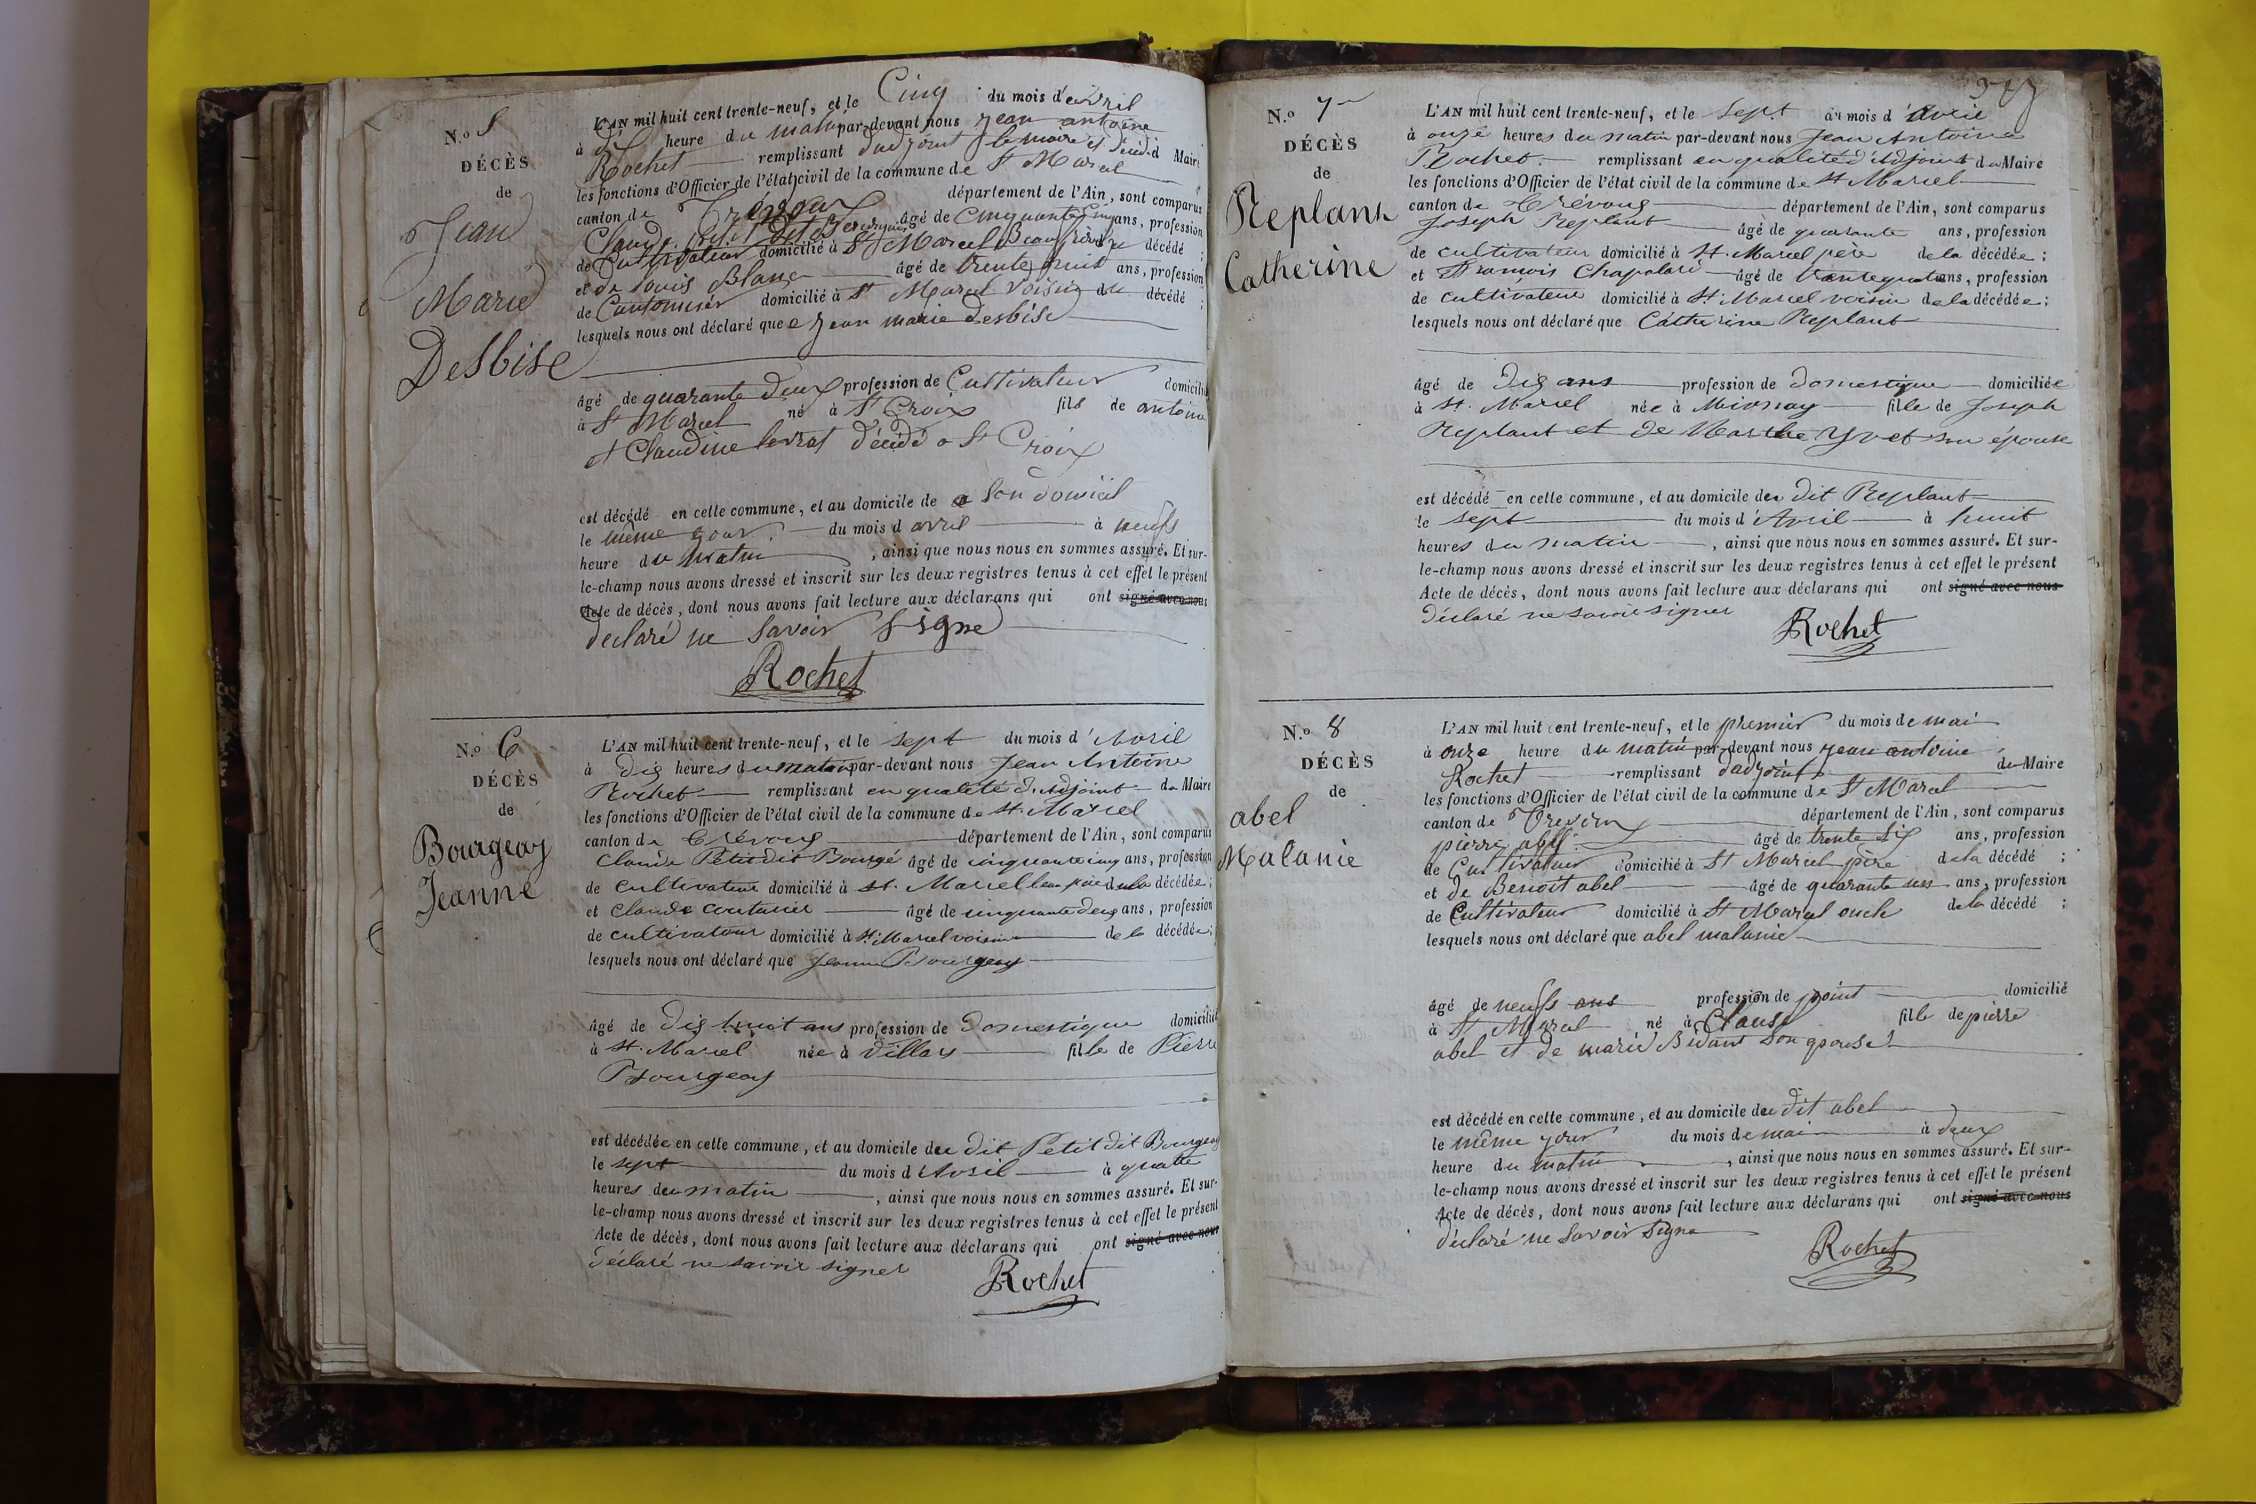 N.o 5
DÉCÈS
de
Jean
Marie
Desbise
L'AN mil huit cent trente-neuf, et le Cinq du mois d'avril
à dix heure du matin par-devant nous jean antoine
Rochet remplissant d'adjoint le maire Maire
les fonctions d'Officier de l'état civil de la commune de St Marcel
canton de Trevoux département de l'Ain, sont comparus
Claude Petit dit Bourgeois âgé de Cinquante cinq ans, profession
de Cultivateur domicilié à St Marcel Beau frère du décédé ;
et de Louis Blanc âgé de trente huit ans, profession
de Cantonnier domicilié à St Marcel voisin du décédé ;
lesquels nous ont déclaré que jean marie desbise
âgé de quarante deux profession de Cultivateur domicilié
à St Marcel né à St Croix fils de antoine
et Claudine décédé a St Croix
est décédé en cette commune, et au domicile de a son domicil
le même jour du mois d avril à neufs
heure du matin, ainsi que nous nous en sommes assuré. Et sur-
le-champ nous avons dressé et inscrit sur les deux registres tenus à cet effet le présent
Acte de décès, dont nous avons fait lecture aux déclarans qui ont signé avec nous
declaré ne savoir signe
Rochet
N.o 6
DÉCÈS
de
Bourgeay
Jeanne
L'AN mil huit cent trente-neuf, et le sept du mois d'Avril
à dix heures du matin par-devant nous Jean Antoine
Rochet remplissant en qualité d'Adjoint du Maire
les fonctions d'Officier de l'état civil de la commune de St. Marcel
canton de Trévoux département de l'Ain, sont comparus
Claude Petit dit Bourgé âgé de cinquante cinq ans, profession
de cultivateur domicilié à St. Marcel beau père de la décédée ;
et Claude couturier âgé de cinquante deux ans, profession
de cultivateur domicilié à St. Marcel voisin de la décédée ;
lesquels nous ont déclaré que Jeanne Bourgeay
âgé de dix huit ans profession de domestique domicilié
à St. Marcel née à Villars fille de Pierre
Bourgeay
est décédée en cette commune, et au domicile du dit Petit dit Bourgeay
le sept du mois d Avril à quatre
heures du matin, ainsi que nous nous en sommes assuré. Et sur-
le-champ nous avons dressé et inscrit sur les deux registres tenus à cet effet le présent
Acte de décès, dont nous avons fait lecture aux déclarans qui ont signé avec nous
déclaré ne savoir signer
Rochet
N.o 7
DÉCÈS
de
Replant
Catherine
L'AN mil huit cent trente-neuf, et le sept du mois d'Avril
à onze heures du matin par-devant nous Jean Antoine
Rochet remplissant en qualité d'Adjoint du Maire
les fonctions d'Officier de l'état civil de la commune de St. Marcel
canton de Trévoux département de l'Ain, sont comparus
Joseph Replant âgé de quarante ans, profession
de cultivateur domicilié à St. Marcel père de la décédée ;
et François Chapolard âgé de trente quatre ans, profession
de cultivateur domicilié à St. Marcel voisin de la décédée ;
lesquels nous ont déclaré que Catherine Replant
âgé de dix ans profession de domestique domiciliée
à St. Marcel née à Mionnay fille de Joseph
Replant et de Marthe Yvet son épouse
est décédé en cette commune, et au domicile du dit Replant
le sept du mois d'Avril à huit
heures du matin, ainsi que nous nous en sommes assuré. Et sur-
le-champ nous avons dressé et inscrit sur les deux registres tenus à cet effet le présent
Acte de décès, dont nous avons fait lecture aux déclarans qui ont signé avec nous
déclaré ne savoir signer
Rochet
N.o 8
DÉCÈS
de
abel
Malanie
L'AN mil huit cent trente-neuf, et le premier du mois de mai
à onze heure du matin par-devant nous jean antoine
Rochet remplissant d'adjoint du Maire
les fonctions d'Officier de l'état civil de la commune de St Marcel
canton de Trevoux département de l'Ain, sont comparus
pierre abel âgé de trente six ans, profession
de Cultivateur domicilié à St Marcel père de la décédé ;
et de Benoit abel âgé de quarante un ans, profession
de Cultivateur domicilié à St Marcel oncle de la décédé ;
lesquels nous ont déclaré que abel malanie
âgé de neufs ans profession de point domicilié
à St Marcel né à fille de pierre
abel et de marie Bidant son epouse
est décédé en cette commune, et au domicile du dit abel
le même jour du mois de mai à deux
heure du matin, ainsi que nous nous en sommes assuré. Et sur-
le-champ nous avons dressé et inscrit sur les deux registres tenus à cet effet le présent
Acte de décès, dont nous avons fait lecture aux déclarans qui ont signé avec nous
déclaré ne savoir signe
Rochet